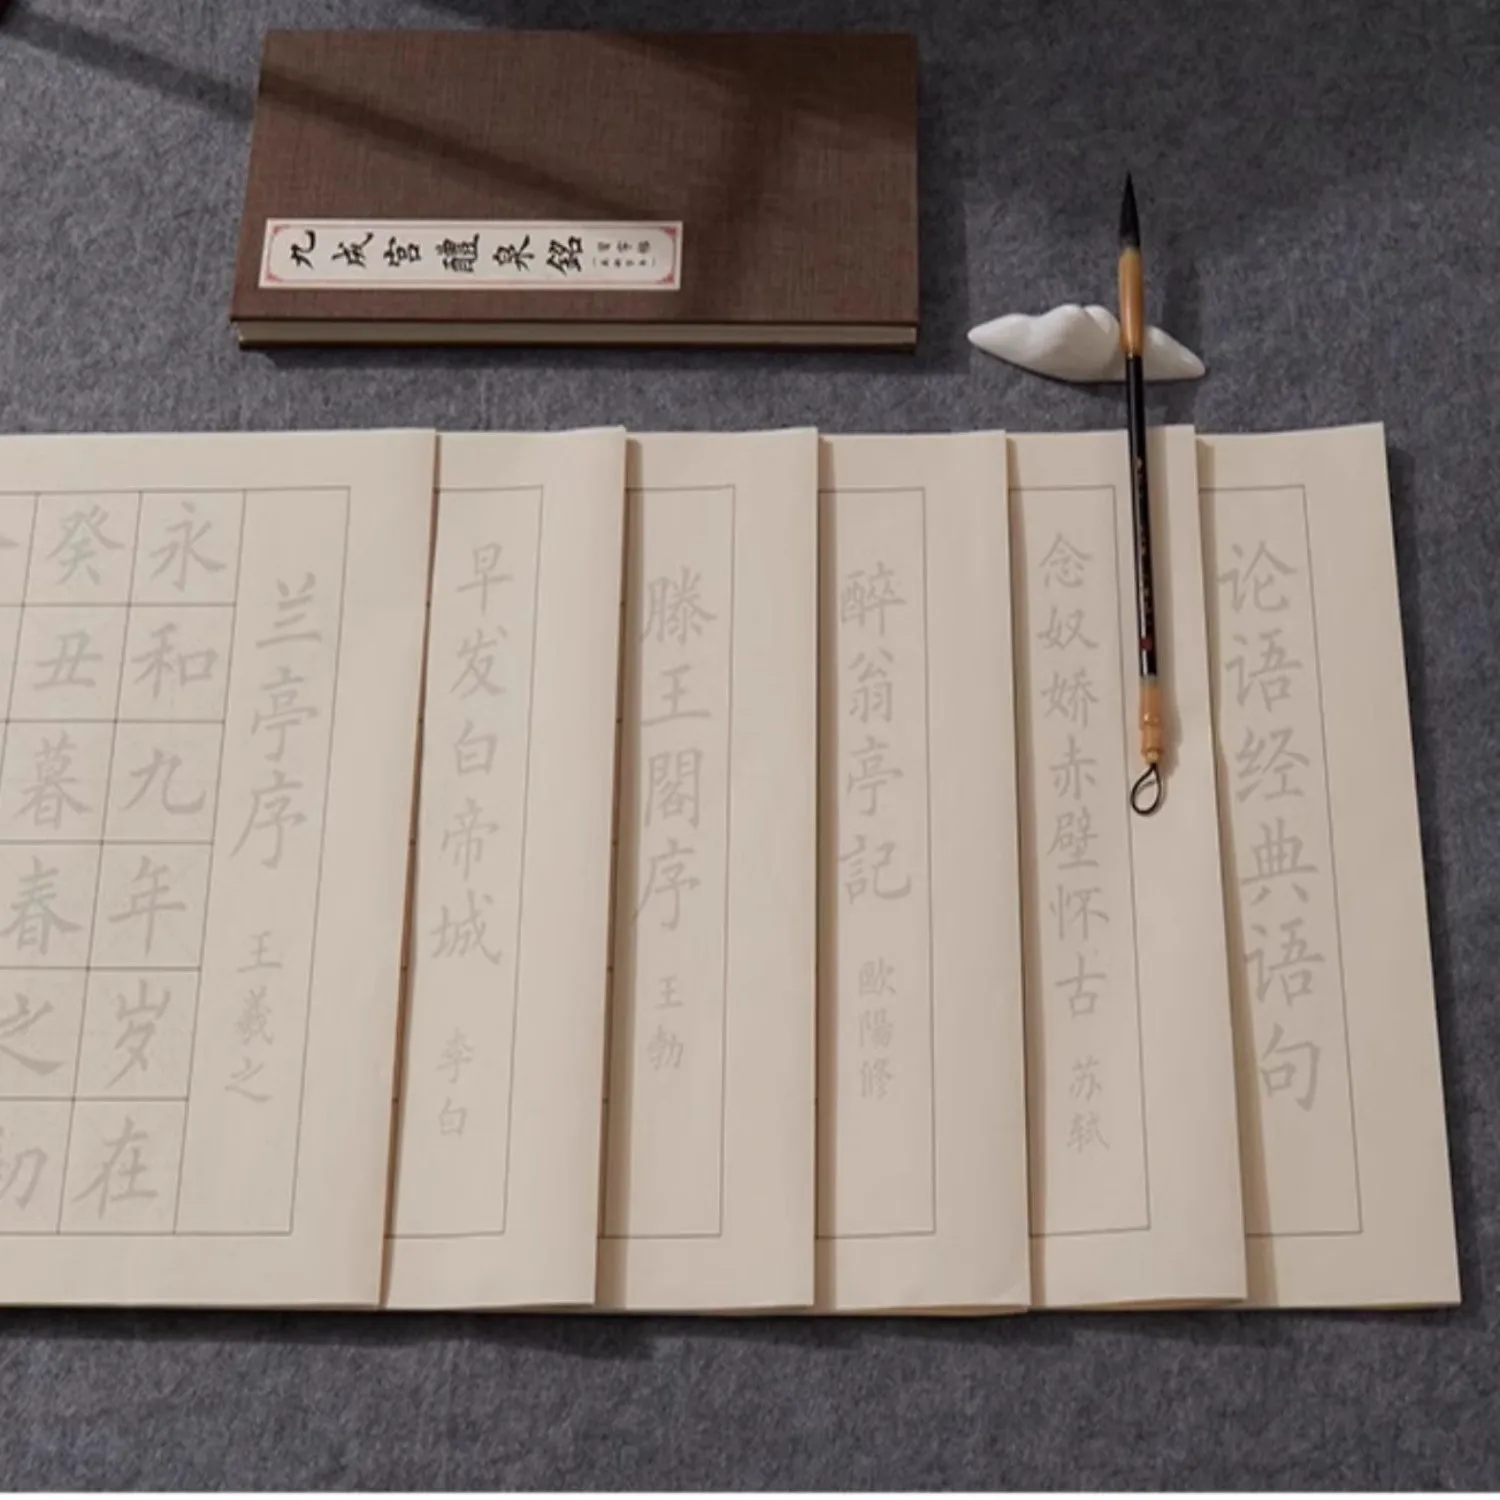 九成宮醴泉銘
習字帖
论语经典语句
念奴娇赤壁怀古 苏轼
醉翁亭記 歐陽修
滕王閣序 王勃
早发白帝城 李白
兰亭序 王羲之
永和九年岁在
癸丑暮春之初